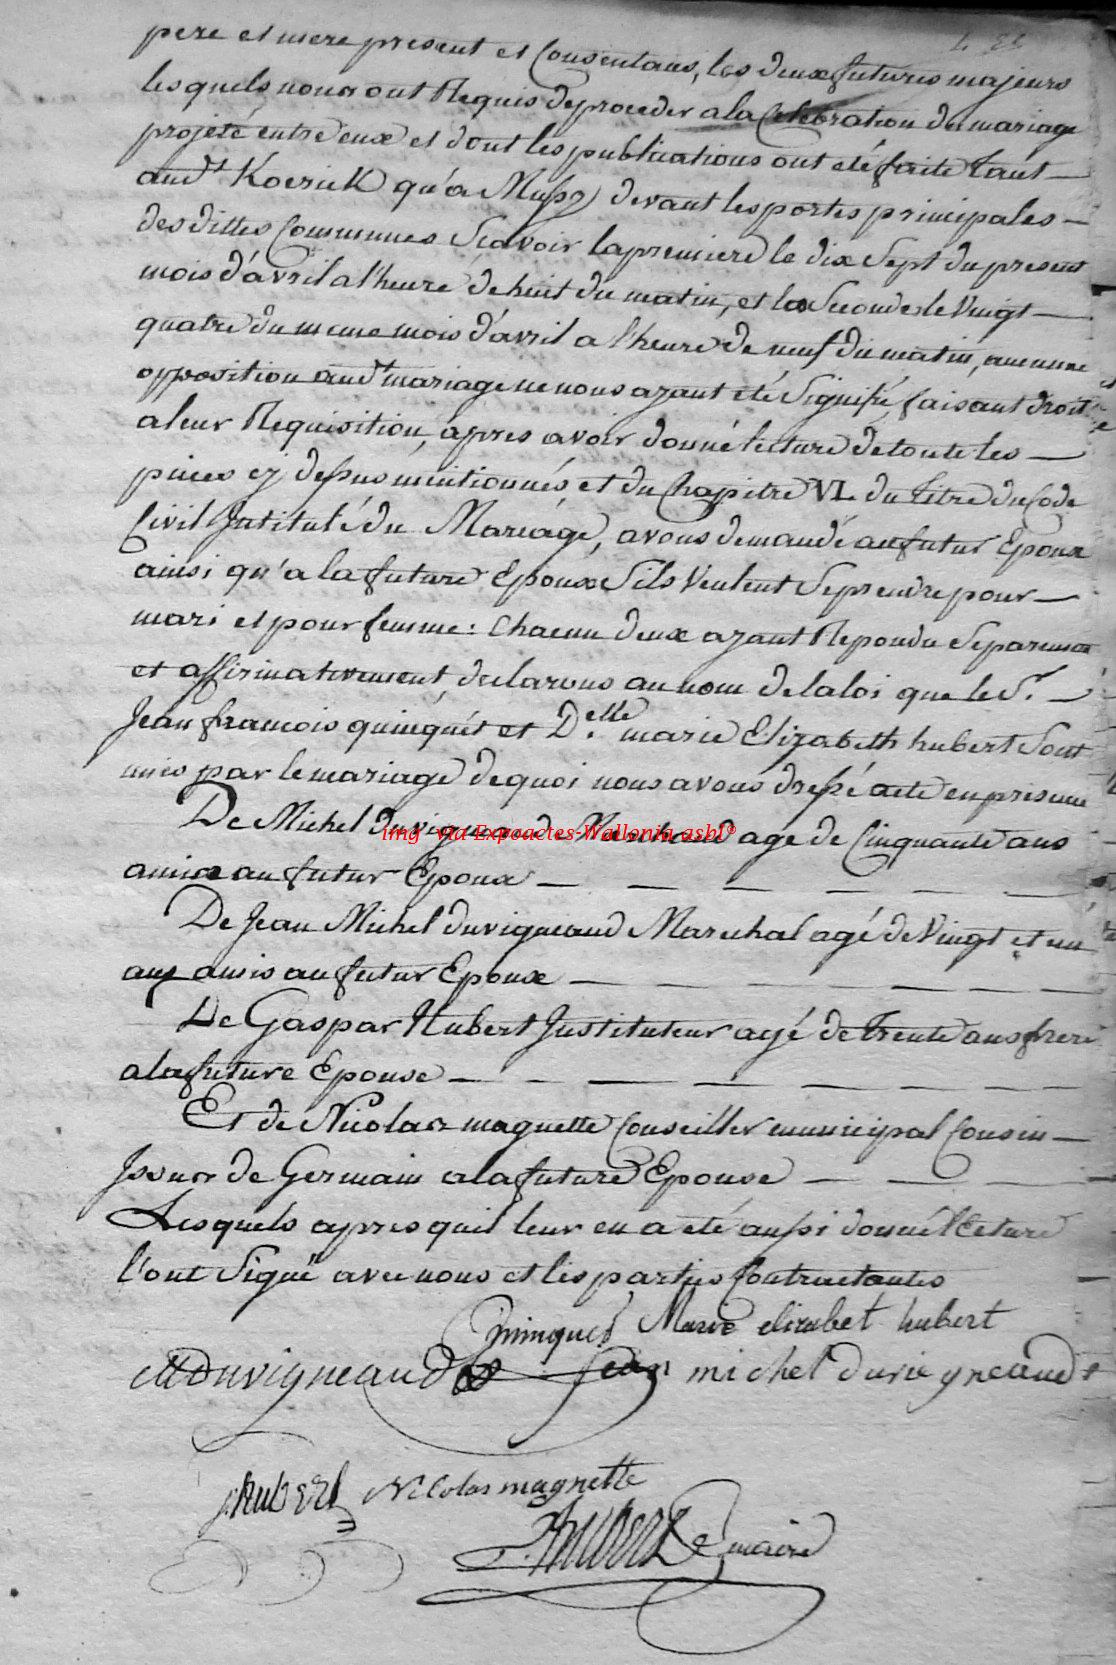 pere et mere present et Consentans, les deux futures majeurs
lesquels nous ont Requis de proceder a la Celebration du mariage
projeté entre eux et dont les publications ont eté faite tant —
aud.t Koerick qu'a Mussy devant les portes principales —
des dittes Communes Scavoir la premiere le dix Sept du present
mois d'avril a l'heure de huit du matin, et la Seconde le Vingt —
quatre du meme mois d'avril a l'heure de neuf du matin, aucunne
opposition aud.t mariage ne nous ayant eté Signifié, faisant droit
a leur Requisition, apres avoir donné lecture de toute les —
pieces cy dessus mentionnés et du Chapitre VI. du titre du Code
Civil Intitulé du Mariage, avons demandé au futur Epoux
ainsi qu'a la future Epouse Sils Veulent Se prendre pour —
mari et pour femme : Chacun deux ayant Repondu Separement
et affirmativement, declarons au nom de la loi que le S.r —
Jean francois quinquet et D.elle marie Elizabeth hubert Sont
unis par le mariage de quoi nous avons dressé acte en presence
De Michel duvigneaud Marchand age de Cinquante ans
amis au futur Epoux — — — — — —
De Jean Michel duvigneaud Marechal agé de Vingt et un
ans amis au futur Epoux — — — — — —
De Gaspar Hubert Instituteur agé de trente ans frere
a la future Epouse — — — — — — —
Et de Nicolas magnette Conseiller municipal Cousin —
Issus de Germain a la future Epouse — — —
Lesquels apres quil leur en a eté aussi donné lecture
l'ont Signé avec nous et les parties Contractantes
img via Expoactes-Wallonia asbl©
quinquet Marie elizabet hubert
MDuvigneaud Jean michel duvigneaud
g: hubert Nicolas magnette
hubert maire